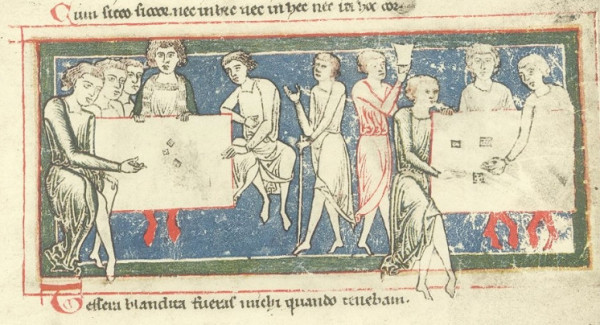 Cum sicco siccor. nec in hic nec in hec nec in hoc cor
Tessera blandita fueras michi quando tenebam.